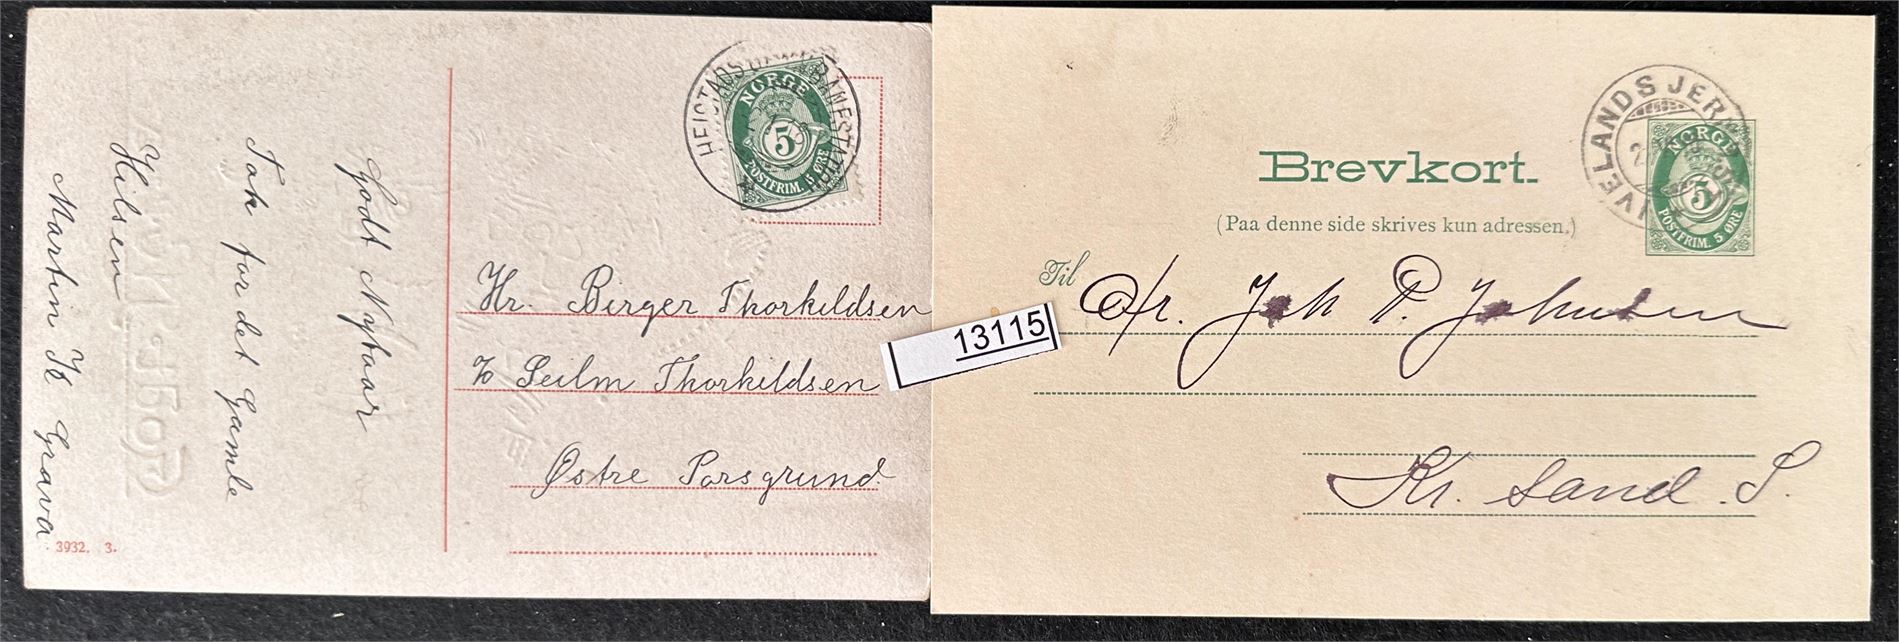 Godt Nytaar
Tak for det Gamle
Hilsen
Martin K Grava
3932. 3.
NORGE
5
POSTFRIM. 5 ØRE
Hr. Birger Thorkildsen
Thorkildsen
Østre Porsgrund
13115
Brevkort.
(Paa denne side skrives kun adressen.)
VELANDS JER
NORGE
5
POSTFRIM. 5 ØRE
Til Hr. Joh P. Johnsen
Kr. sand. S.